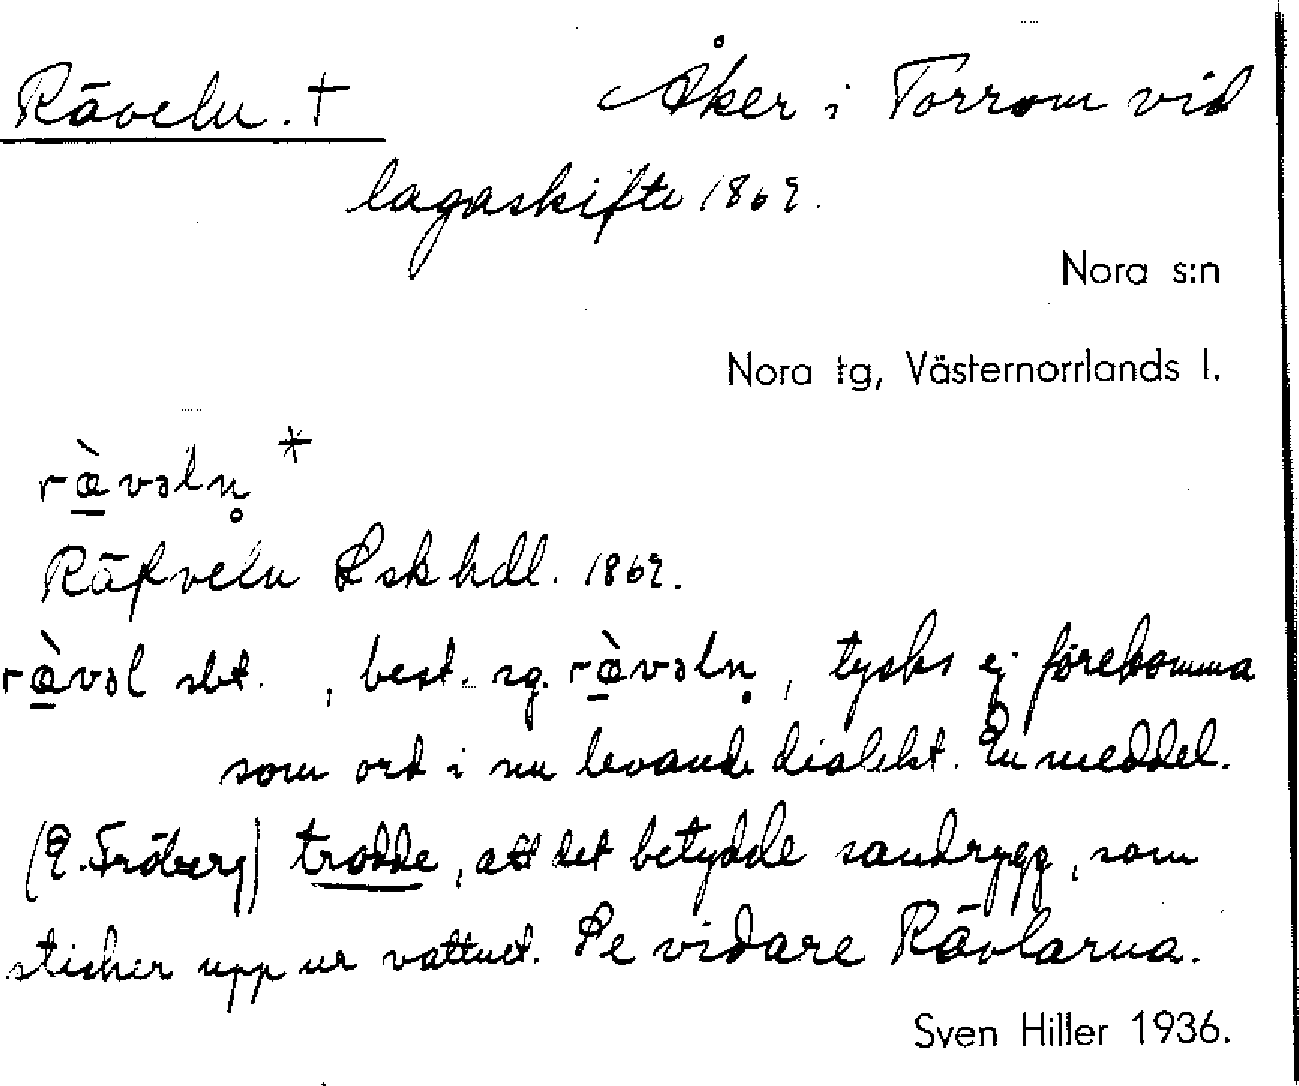 Räveln. † Åker i Torrom vid
lagaskifte 1869.
Nora s:n
Nora tg, Västernorrlands l.
ræ̀vəln̥ *
Räfveln Lskhdl. 1869.
ræ̀vəl sbt. , best. sg. ræ̀vəln̥ , tycks ej förekomma
som ord i nu levande dialekt. En meddel.
(E. Fröberg) trodde, att det betydde sandrygg, som
sticker upp ur vattnet. Se vidare Rävlarna.
Sven Hiller 1936.